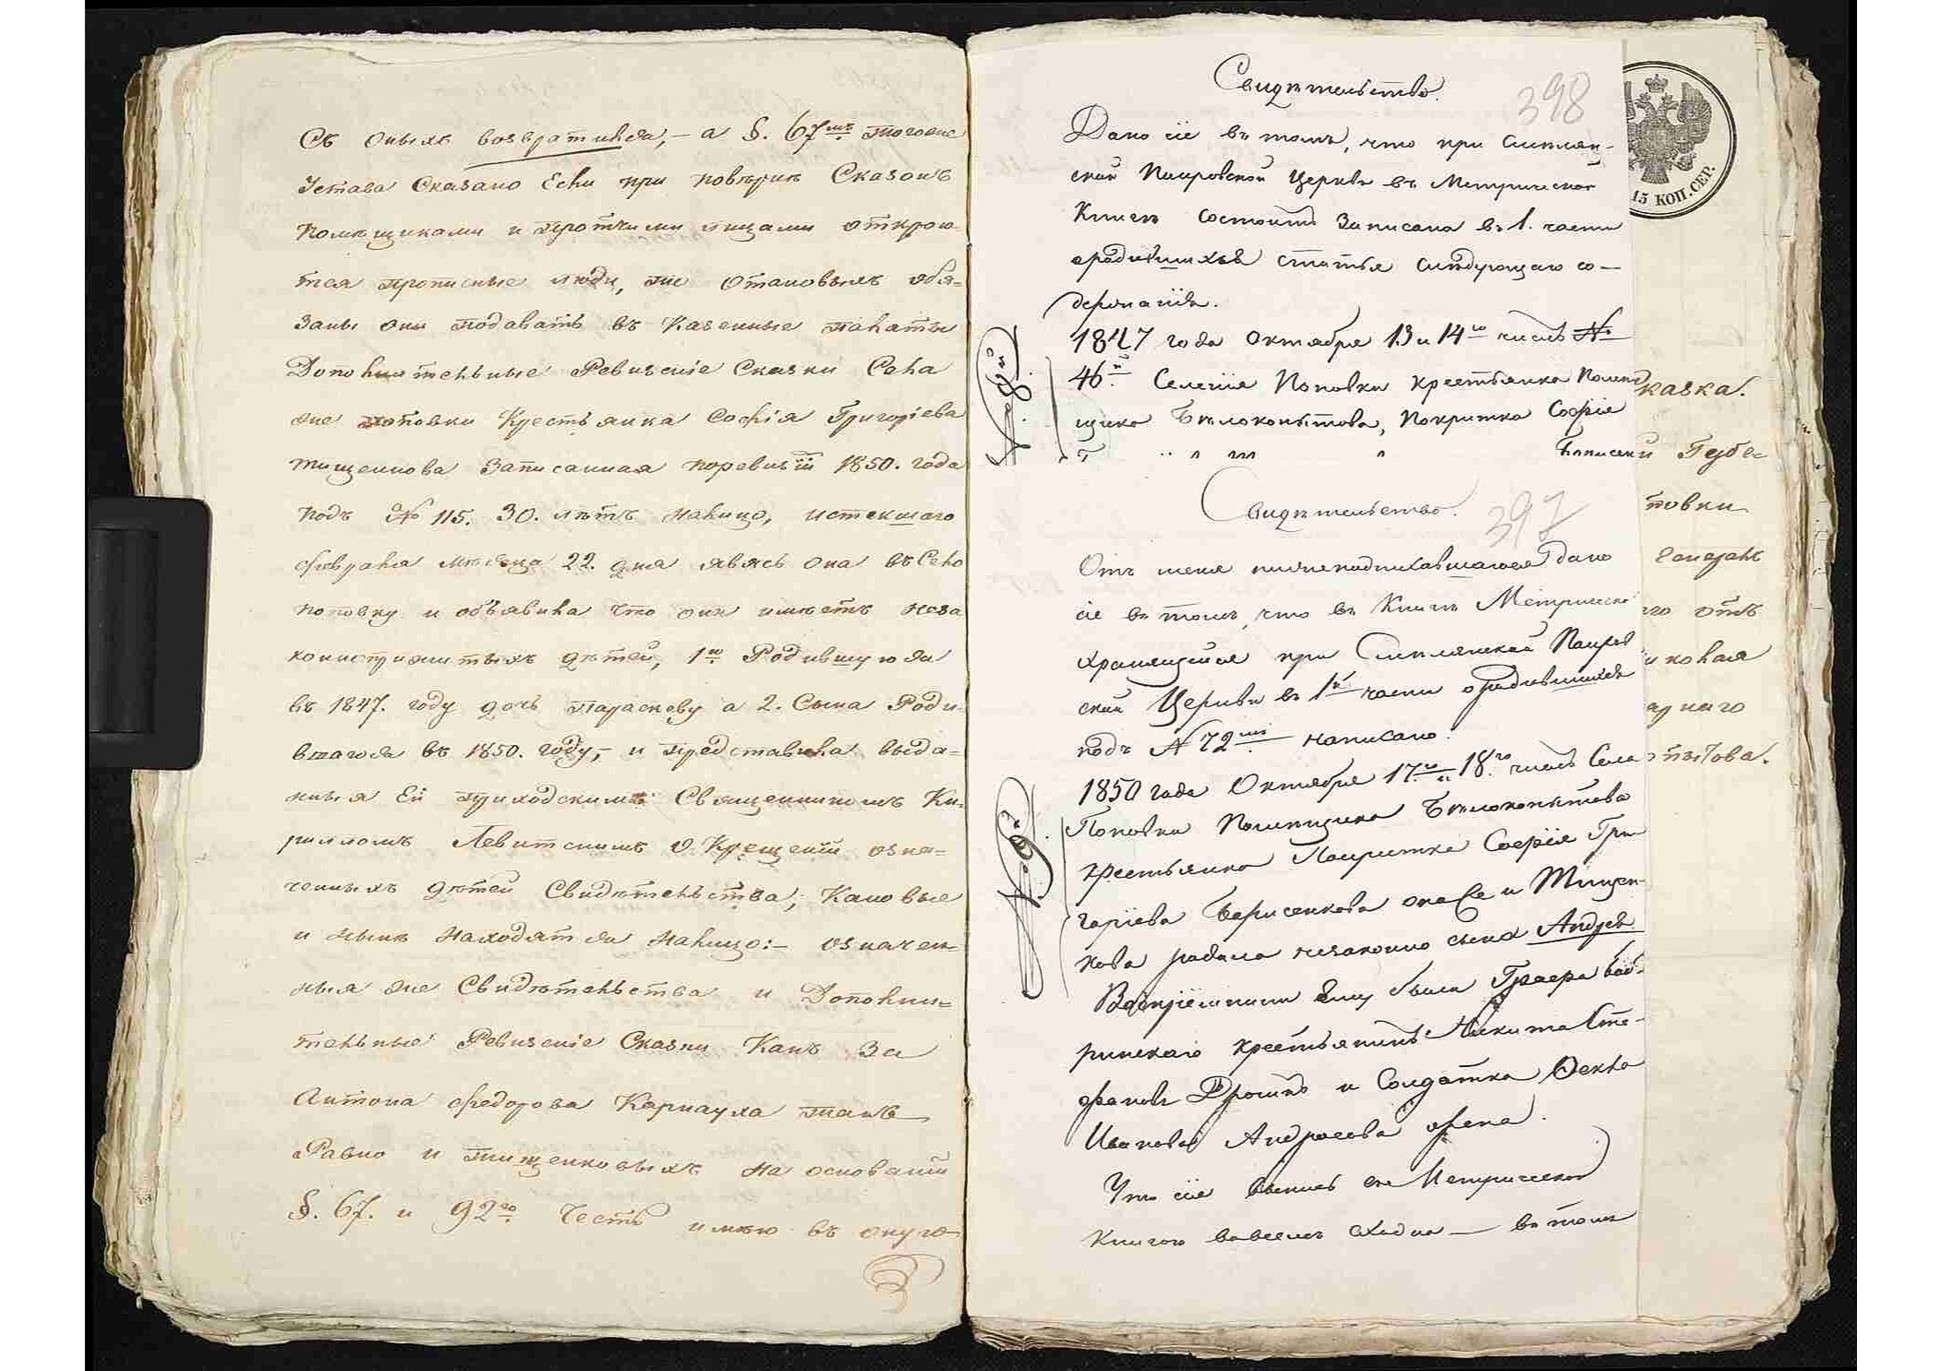 съ оныхъ возвратился, – а §. 67мъ. тогоже
Устава Сказано Если при повѣркѣ Сказокъ
помѣщиками и протчими лицами откроют-
тся прописные люди, то отаковыхъ обя-
заны они подавать въ Казенные палаты
Дополнительные Ревизскіе Сказки Села
же поповки Крестьянка Софія Григоріева
тищенкова Записанная поревизіи 1850. года
подъ № 115. 30. лѣтъ налицо, истекшаго
февраля мѣсяца 22. дня явясь она въ Село
поповку и объявила что она имѣетъ неза
конноприжитыхъ дѣтей, 1ю. Родившуюся
въ 1847. году дочь параскеву а 2. Сына Роди-
вшагося въ 1850. году, – и представила выда-
нныя Ей приходскимъ Священникомъ Ки-
рилломъ Левитскимъ о Крещеніи озна-
ченныхъ дѣтей Свидѣтельства; Каковые
и нынѣ находятся налицо: – означен-
ныя же Свидѣтельства и Дополни-
тельные Ревизскіе Сказки Какъ За
Антона федорова Карнауха такъ
Равно и тищенковыхъ на основаніи
§. 67. и 92го. Честь имѣю въ оную
Свидѣтельство.
398
15 КОП. СЕР.
Дано сіе въ томъ, что при
ской Покровской Церкви въ Метрической
Книгѣ состоитъ записана въ 1. части
ородившихся статья слѣдующаго со-
держанія.
1847 года Октября 13 и 14го чиселъ №
46й. Селенія Поповки крестьянка Помѣ
щика Бѣлокопытова, Покритка Софія
казка.
Губе-
Свидѣтельство.
397
товки
Отъ меня нижеподписавшагося дано
сіе въ томъ, что въ Книгѣ Метрической
го отъ
хранящейся при Покров
ской Церкви въ 1й части ородившихся
подъ № 72мъ написано.
1850 года Октября 17го и 18го чиселъ Села
пытова.
Поповки Помѣщика Бѣлокопытова
крестьянка Покритка Софія Гри
горіева Борисенкова она Же и Тищен-
кова родила незаконно сына Андрея
Воспріемники Ему были Графа Боб-
ринскаго крестьянинъ Никита Сте-
фановъ и Солдатка Фекла
Иванова Андреева жена.
Что сія выпись съ Метрической
Книгою вовсемъ сходна – въ томъ